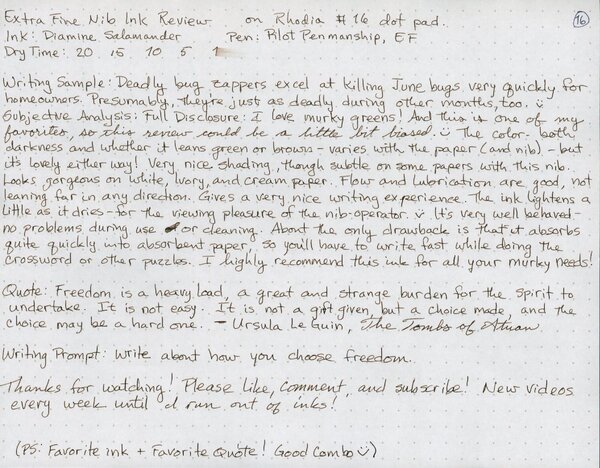 Extra Fine Nib Ink Review on Rhodia #16 dot pad. 16
Ink: Diamine Salamander Pen: Pilot Penmanship, EF
Dry Time: 20 15 10 5 1
Writing Sample: Deadly bug zappers excel at killing June bugs very quickly for
homeowners. Presumably, they're just as deadly during other months, too. ü
Subjective Analysis: Full Disclosure: I love murky greens! And this is one of my
favorites, so this review could be a little bit biased. ü The color - both
darkness and whether it leans green or brown - varies with the paper (and nib) - but
it's lovely either way! Very nice shading, though subtle on some papers with this nib.
Looks gorgeous on white, Ivory, and cream paper. Flow and lubrication are good, not
leaning far in any direction. Gives a very nice writing experience. The ink lightens a
little as it dries - for the viewing pleasure of the nib-operator. ü It's very well behaved -
no problems during use or cleaning. About the only drawback is that it absorbs
quite quickly into absorbent paper, so you'll have to write fast while doing the
crossword or other puzzles. I highly recommend this ink for all your murky needs!
Quote: Freedom is a heavy load, a great and strange burden for the spirit to
undertake. It is not easy. It is not a gift given, but a choice made, and the
choice may be a hard one. - Ursula Le Guin, The Tombs of Atuan
Writing Prompt: Write about how you choose freedom.
Thanks for watching! Please like, comment, and subscribe! New videos
every week until I run out of inks!
(PS: Favorite ink + Favorite Quote! Good Combo ü)